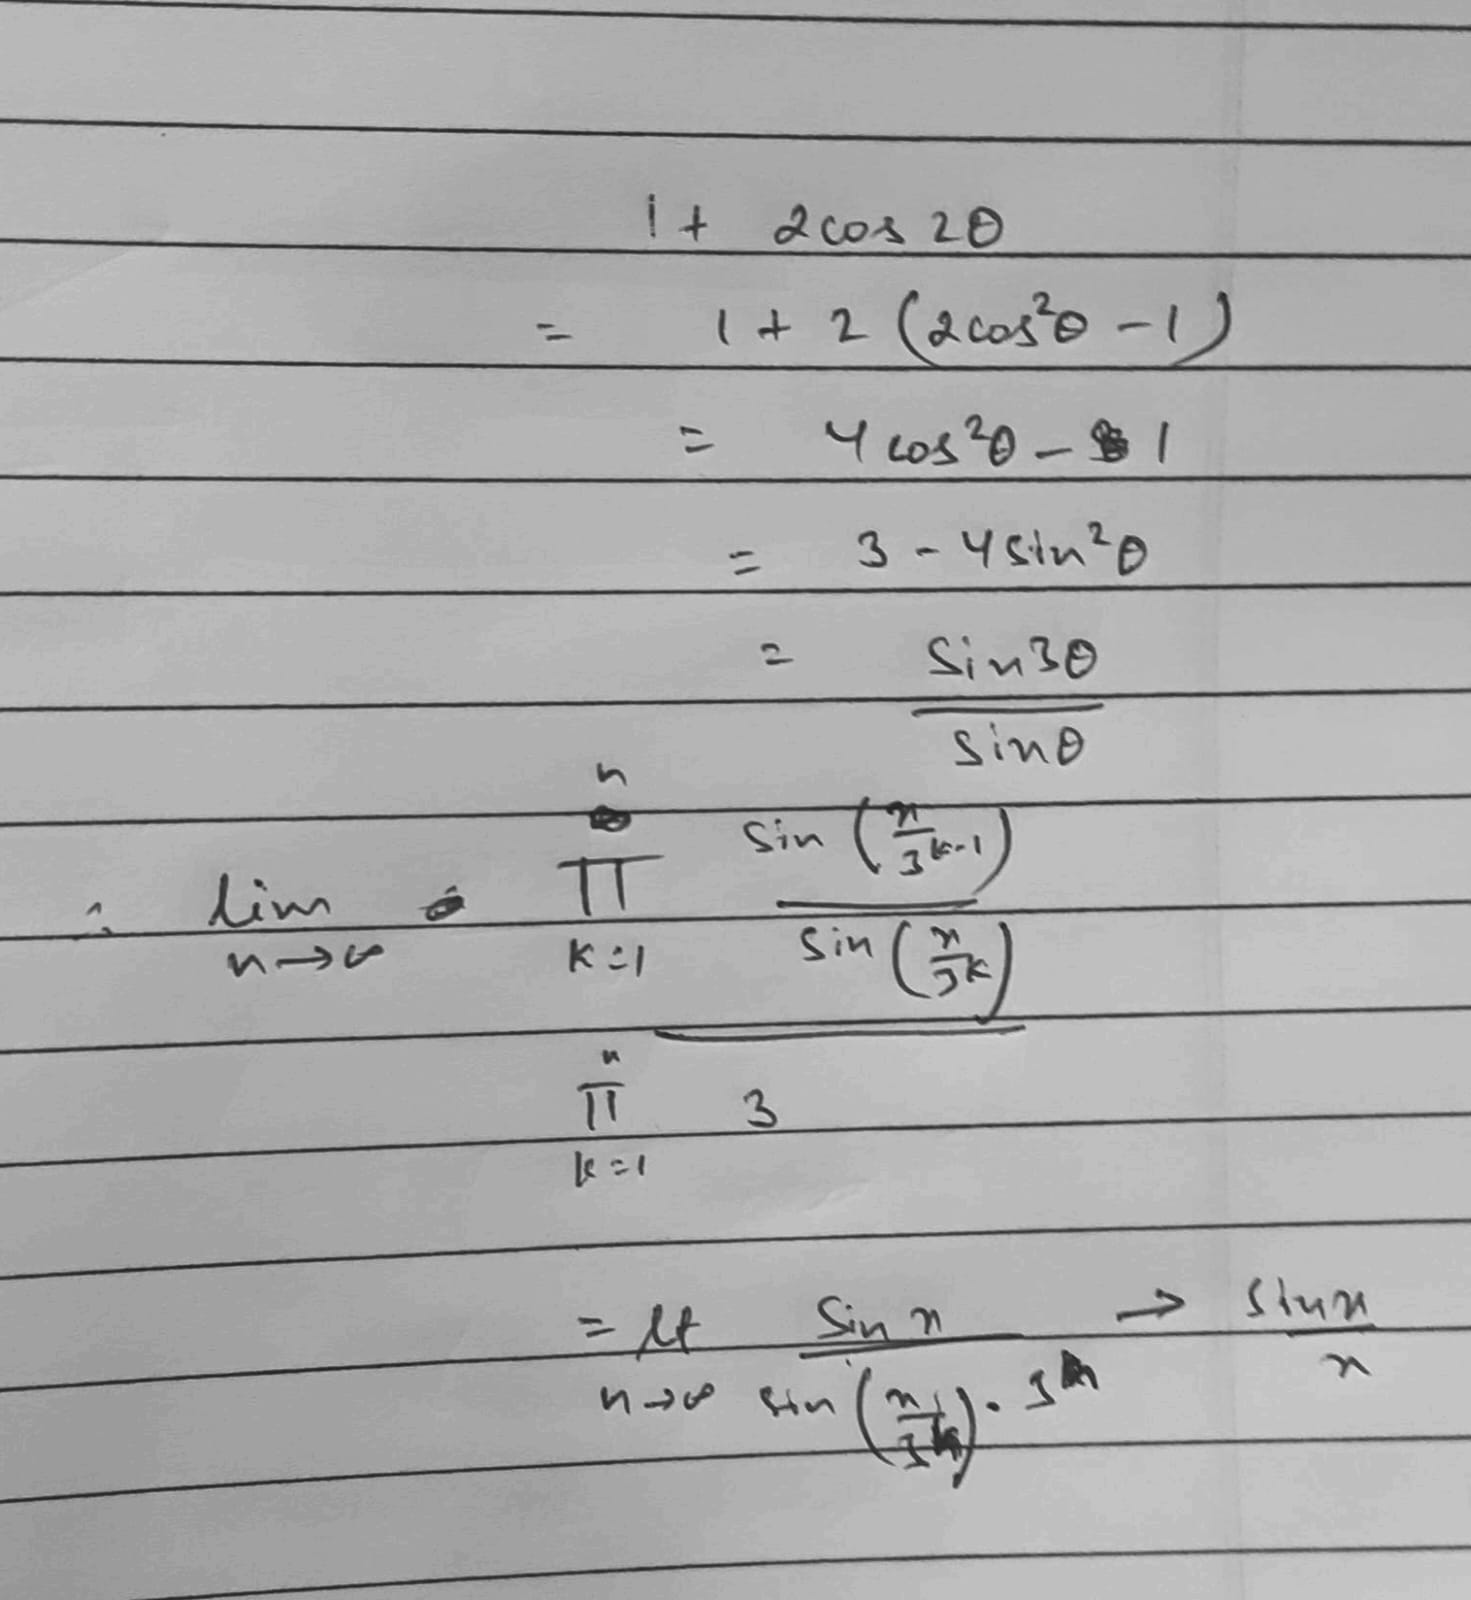 1 + 2cos 2θ
= 1 + 2 (2cos²θ - 1)
= 4 cos²θ - 1
= 3 - 4 sin²θ
= sin3θ
sinθ
n
∴ lim n→∞ Π k=1 sin (x/3^(k-1))
sin (x/3^k)
n
Π 3
k=1
= lt sin x → sin x
n→∞ sin (x/3^n) . 3^n x